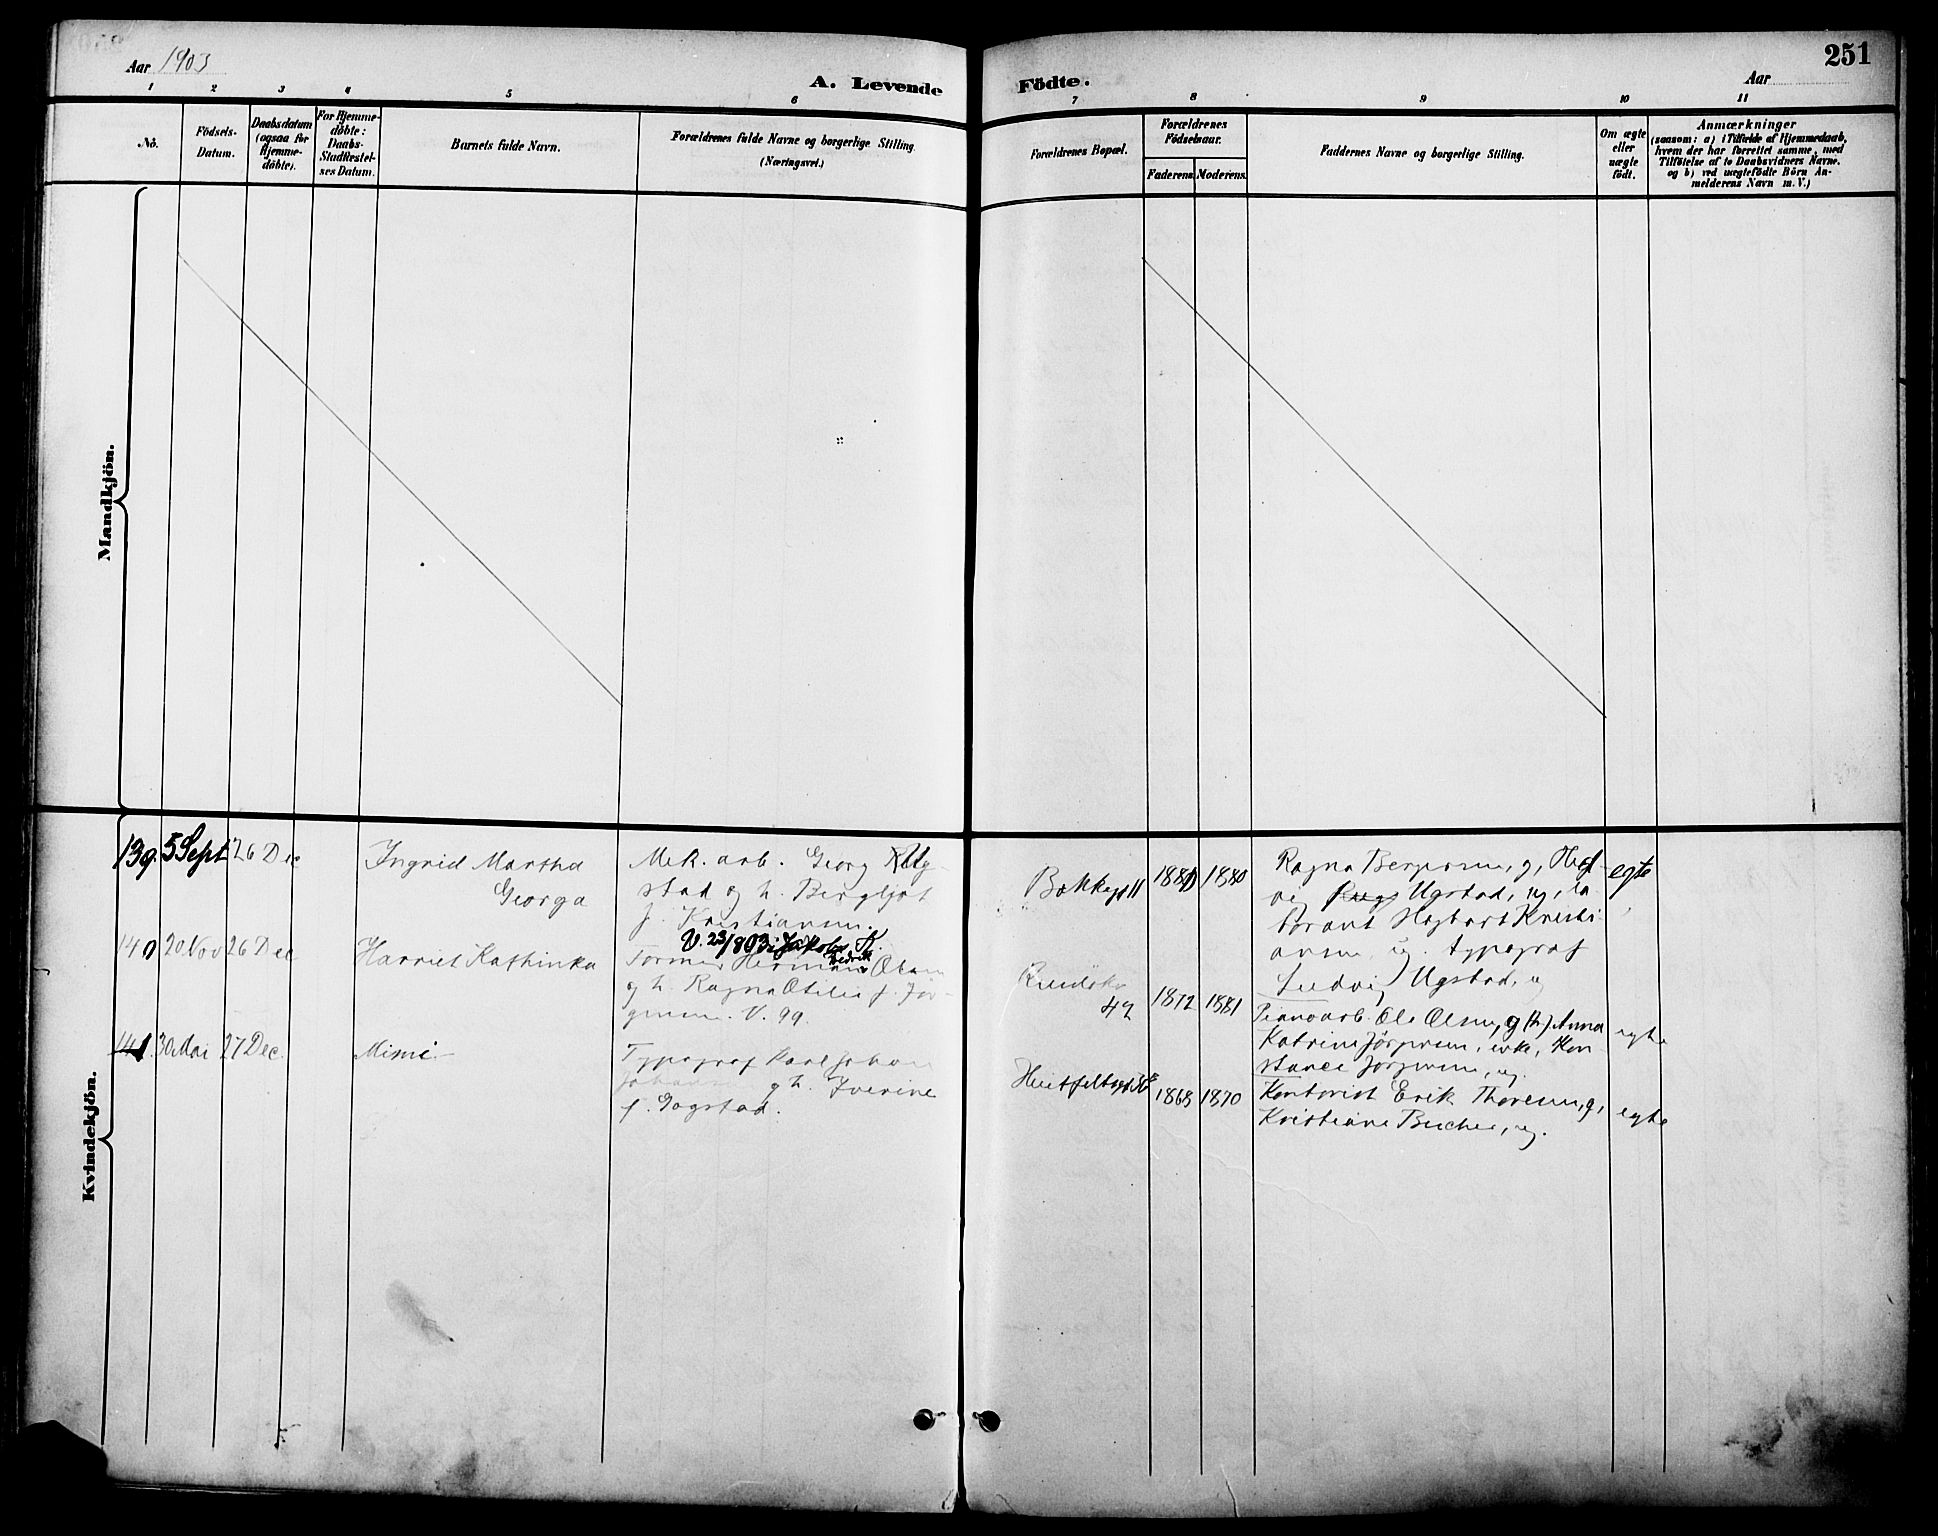 Aar 1903
A. Levende
Födte.
Aar
251
1 2 3 4 5 6 7 8 9 10 11
No.
Födsels-
Datum.
Daabsdatum
(ogsaa for
Hjemme-
döbte).
For Hjemme-
döbte:
Daabs-
Stadfæstel-
ses Datum.
Barnets fulde Navn.
Forældrenes fulde Navne og borgerlige Stilling.
(Næringsvei.)
Forældrenes Bopæl.
Forældrenes
Födselsaar.
Faderens.
Moderens.
Faddernes Navne og borgerlige Stilling.
Om ægte
eller
uægte
födt.
Anmærkninger
(saasom: a) i Tilfælde af Hjemmedaab,
hvem der har forrettet samme, med
Tilföielse af to Daabsvidners Navne.
og b) ved uægtefödte Börn An-
melderens Navn m. V.)
Mandkjön.
Kvindekjön.
139. 5 Sept 26 Dec
Ingrid Martha
Georga
Mek. arb. Georg Ug-
stad og h. Bergljot
f. Kristiansen.
V. 23/8 03 i Jakobs K.
Bakkegd 11
1880 1880
Ragna Bergersen, g, Hed-
vig Ugstad, ug, la
borant Hagbart Kristi-
ansen, ug. typograf
Ludvig Ugstad, ug
egte
140 20 Nov 26 Dec
Harriet Kathinka
Former Herman Fredrik Olsen
og h. Ragna Otilie f. Jör-
gensen. V. 99.
42
1872 1881
Pianoarb. Ole Olsen, g (h.) Anna
Katrine Jörgensen, enke, Kon-
stance Jörgensen, ug.
egte
141. 30 Mai 27 Dec.
Mimi
Typograf Karl Johan
Johansen og h. Iverine
f. Gogstad.
1868 1870
Kontorist Erik Thoresen, g,
Kristiane Bucher, ug.
egte